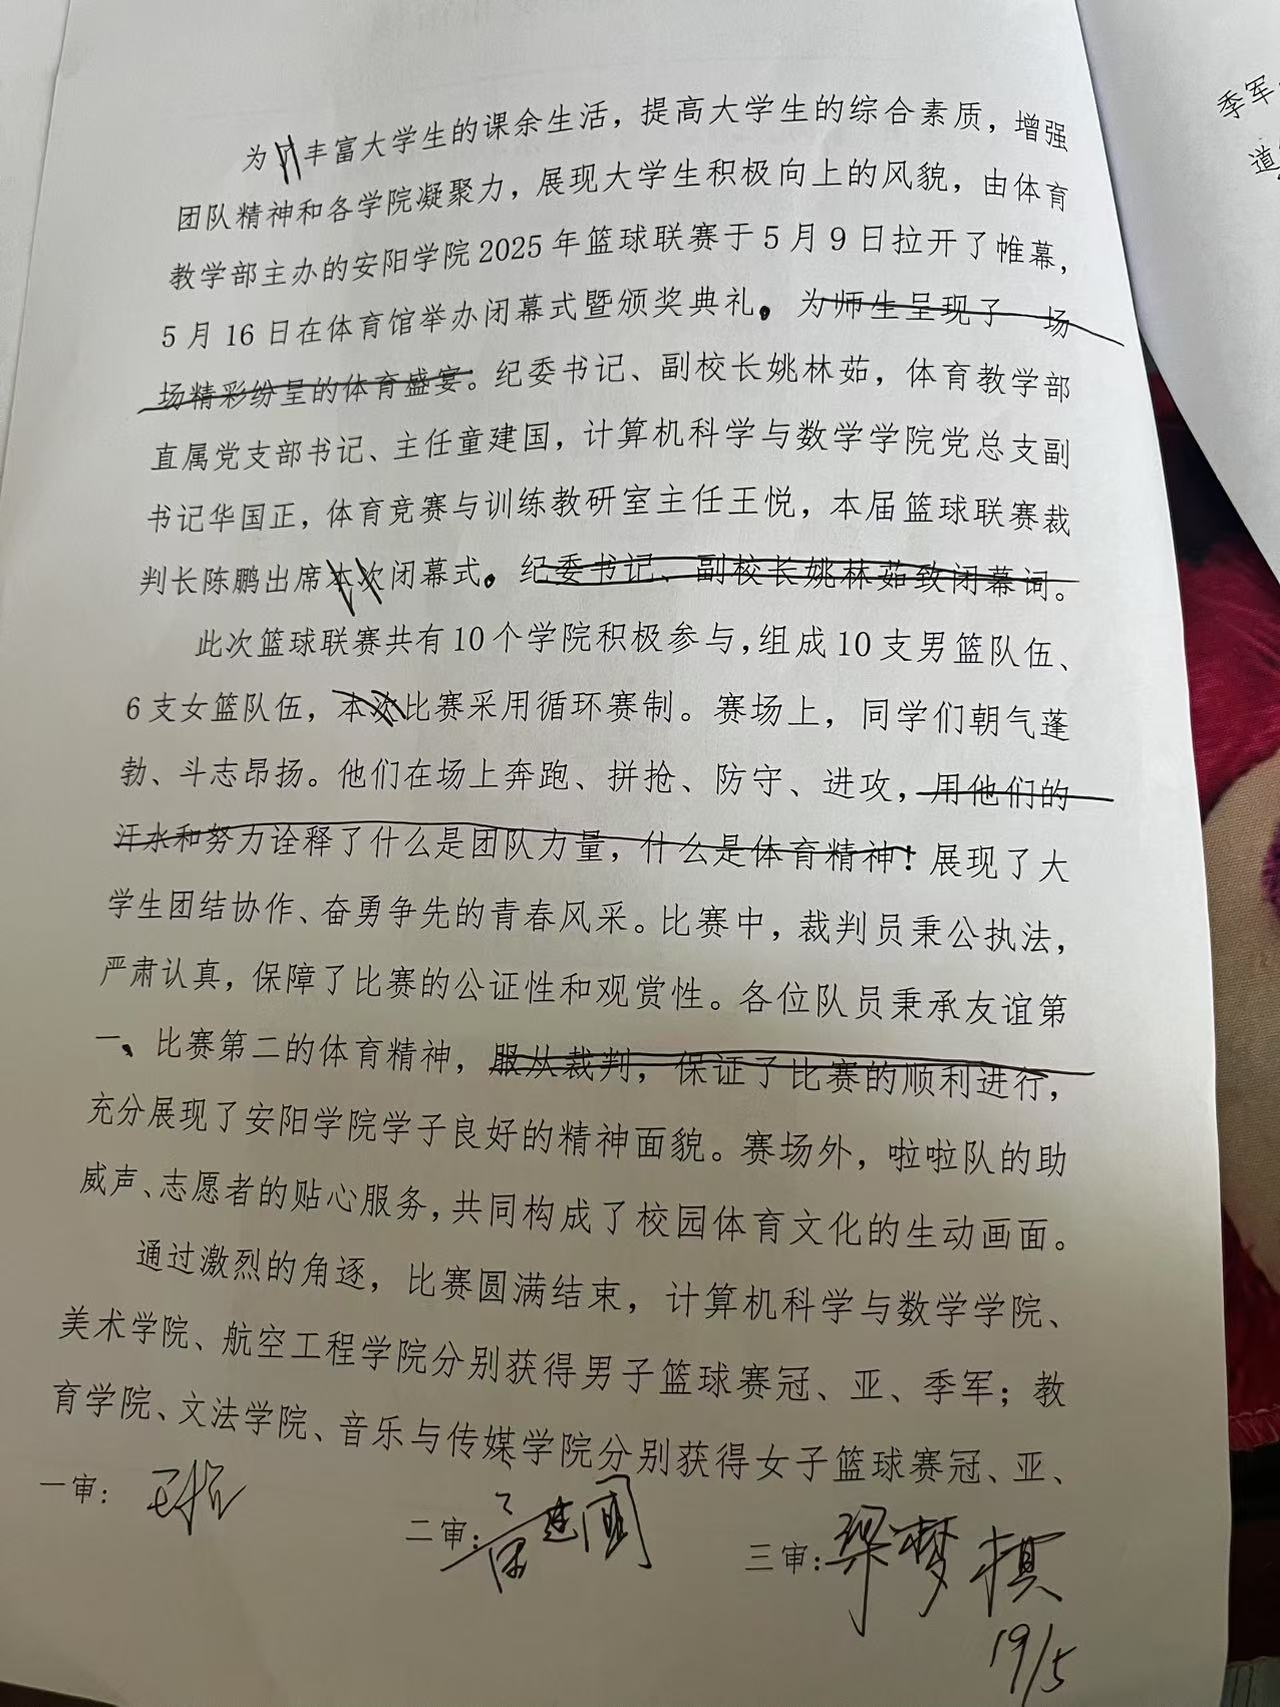 季军
道
为了丰富大学生的课余生活，提高大学生的综合素质，增强
团队精神和各学院凝聚力，展现大学生积极向上的风貌，由体育
教学部主办的安阳学院2025年篮球联赛于5月9日拉开了帷幕，
5月16日在体育馆举办闭幕式暨颁奖典礼。为师生呈现了一场
场精彩纷呈的体育盛宴。纪委书记、副校长姚林茹，体育教学部
直属党支部书记、主任童建国，计算机科学与数学学院党总支副
书记华国正，体育竞赛与训练教研室主任王悦，本届篮球联赛裁
判长陈鹏出席本次闭幕式。纪委书记、副校长姚林茹致闭幕词。
此次篮球联赛共有10个学院积极参与，组成10支男篮队伍、
6支女篮队伍，本次比赛采用循环赛制。赛场上，同学们朝气蓬
勃、斗志昂扬。他们在场上奔跑、拼抢、防守、进攻，用他们的
汗水和努力诠释了什么是团队力量，什么是体育精神！展现了大
学生团结协作、奋勇争先的青春风采。比赛中，裁判员秉公执法，
严肃认真，保障了比赛的公证性和观赏性。各位队员秉承友谊第
一、比赛第二的体育精神，服从裁判，保证了比赛的顺利进行，
充分展现了安阳学院学子良好的精神面貌。赛场外，啦啦队的助
威声、志愿者的贴心服务，共同构成了校园体育文化的生动画面。
通过激烈的角逐，比赛圆满结束，计算机科学与数学学院、
美术学院、航空工程学院分别获得男子篮球赛冠、亚、季军；教
育学院、文法学院、音乐与传媒学院分别获得女子篮球赛冠、亚、
一审：
二审：童建国
三审：梁梦棋
19/5